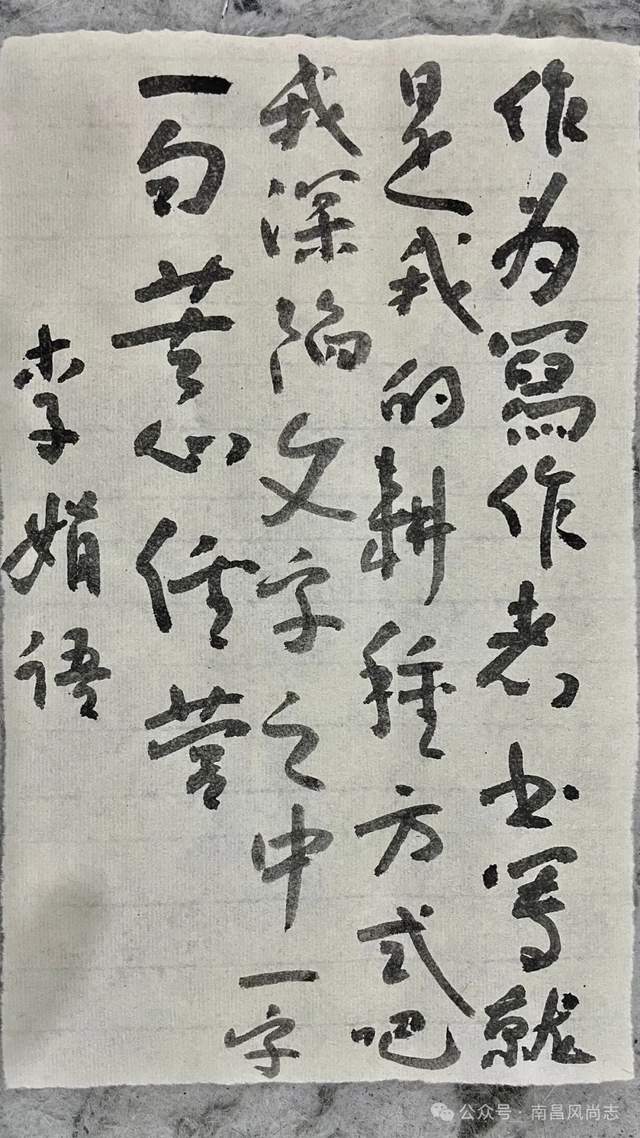 作为寫作者书写就
是我的耕種方式吧
我深陷文字之中一字
一句苦心经营
李娟语
公众号：南昌风尚志